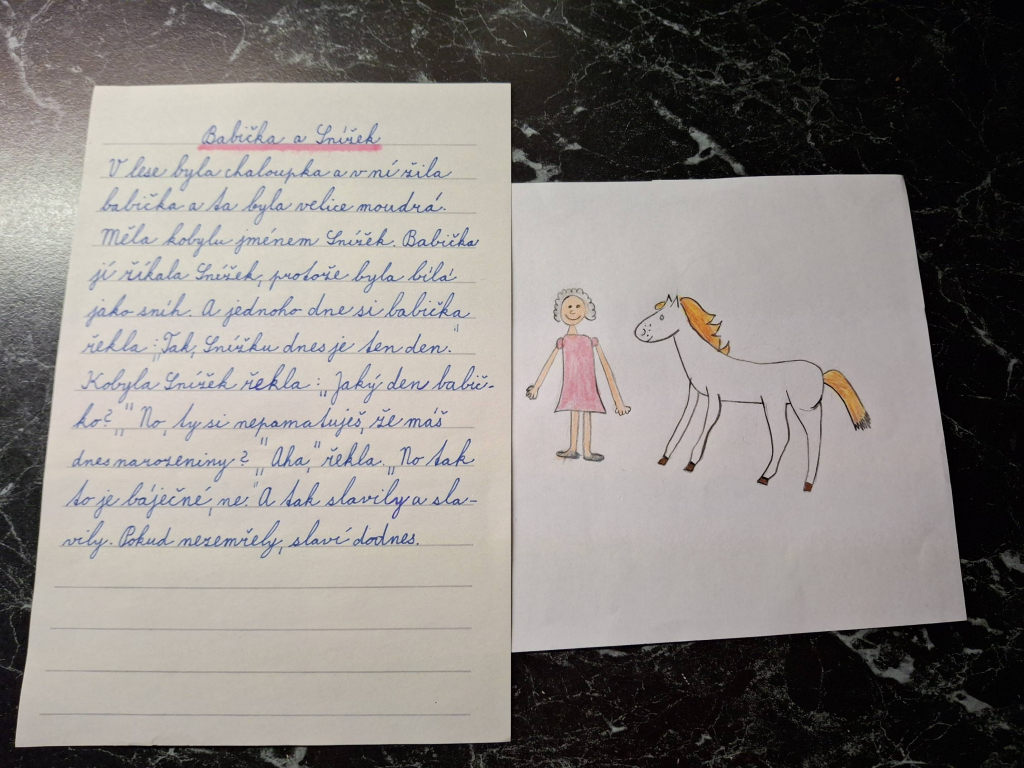 Babička a Snížek
V lese byla chaloupka a v ní žila
babička a ta byla velice moudrá.
Měla kobylu jménem Snížek. Babička
jí říkala Snížek, protože byla bílá
jako sníh. A jednoho dne si babička
řekla: „Tak, Snížku dnes je ten den."
Kobyla Snížek řekla: „Jaký den babič-
ko?" „No, ty si nepamatuješ, že máš
dnes narozeniny? „Aha," řekla. „No tak
to je báječné, ne." A tak slavily a sla-
vily. Pokud nezemřely, slaví dodnes.